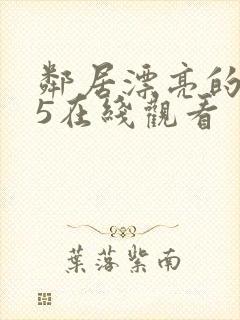 鄰居漂亮的
5在綫觀看
葉落紫南